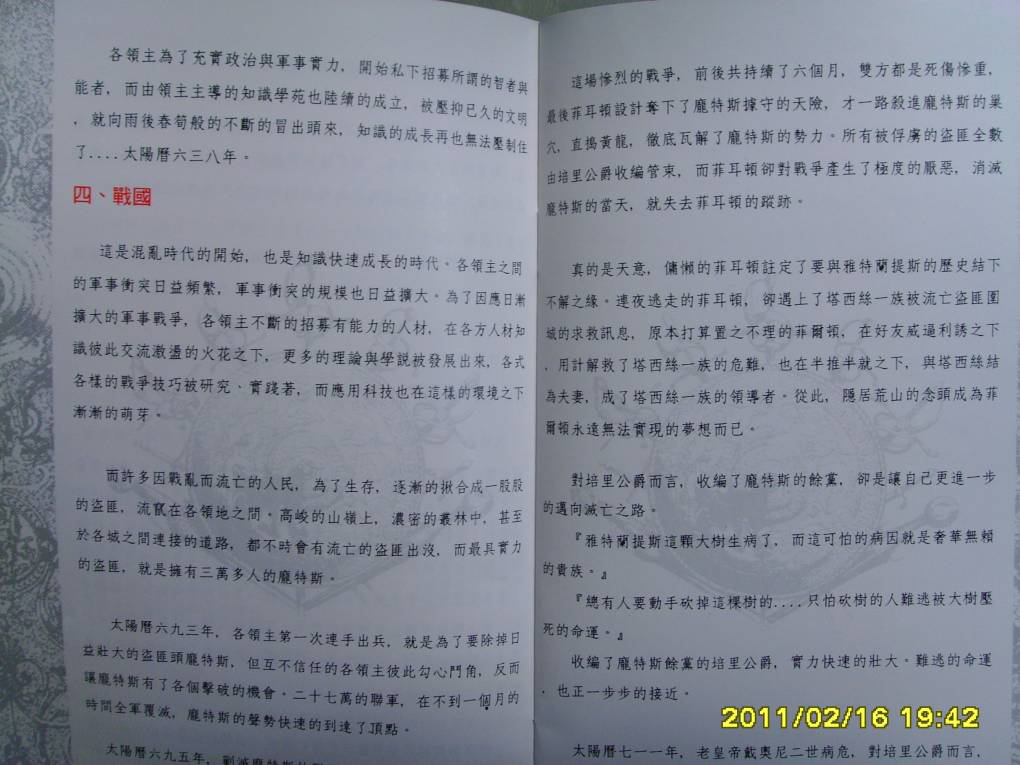 各領主為了充實政治與軍事實力，開始私下招募所謂的智者與
能者，而由領主主導的知識學苑也陸續的成立，被壓抑已久的文明
，就向雨後春筍般的不斷的冒出頭來，知識的成長再也無法壓制住
了....太陽曆六三八年。
四、戰國
這是混亂時代的開始，也是知識快速成長的時代。各領主之間
的軍事衝突日益頻繁，軍事衝突的規模也日益擴大。為了因應日漸
擴大的軍事戰爭，各領主不斷的招募有能力的人材，在各方人材知
識彼此交流激盪的火花之下，更多的理論與學說被發展出來，各式
各樣的戰爭技巧被研究、實踐著，而應用科技也在這樣的環境之下
漸漸的萌芽。
而許多因戰亂而流亡的人民，為了生存，逐漸的揪合成一股股
的盜匪，流竄在各領地之間。高峻的山嶺上，濃密的叢林中，甚至
於各城之間連接的道路，都不時會有流亡的盜匪出沒，而最具實力
的盜匪，就是擁有三萬多人的龐特斯。
太陽曆六九三年，各領主第一次連手出兵，就是為了要除掉日
益壯大的盜匪頭龐特斯，但互不信任的各領主彼此勾心鬥角，反而
讓龐特斯有了各個擊破的機會。二十七萬的聯軍，在不到一個月的
時間全軍覆滅，龐特斯的聲勢快速的到達了頂點。
太陽曆六九五年，剿滅龐特斯的
這場慘烈的戰爭，前後共持續了六個月，雙方都是死傷慘重，
最後菲耳頓設計奪下了龐特斯據守的天險，才一路殺進龐特斯的巢
穴，直搗黃龍，徹底瓦解了龐特斯的勢力。所有被俘虜的盜匪全數
由培里公爵收編管束，而菲耳頓卻對戰爭產生了極度的厭惡，消滅
龐特斯的當天，就失去菲耳頓的蹤跡。
真的是天意，傭懶的菲耳頓註定了要與雅特蘭提斯的歷史結下
不解之緣。連夜逃走的菲耳頓，卻遇上了塔西絲一族被流亡盜匪圍
城的求救訊息，原本打算置之不理的菲爾頓，在好友威逼利誘之下
，用計解救了塔西絲一族的危難，也在半推半就之下，與塔西絲結
為夫妻，成了塔西絲一族的領導者。從此，隱居荒山的念頭成為菲
爾頓永遠無法實現的夢想而已。
對培里公爵而言，收編了龐特斯的餘黨，卻是讓自己更進一步
的邁向滅亡之路。
『雅特蘭提斯這顆大樹生病了，而這可怕的病因就是奢華無賴
的貴族。』
『總有人要動手砍掉這棵樹的....只怕砍樹的人難逃被大樹壓
死的命運。』
收編了龐特斯餘黨的培里公爵，實力快速的壯大。難逃的命運
，也正一步步的接近。
太陽曆七一一年，老皇帝戴奧尼二世病危，對培里公爵而言，
2011/02/16 19:42